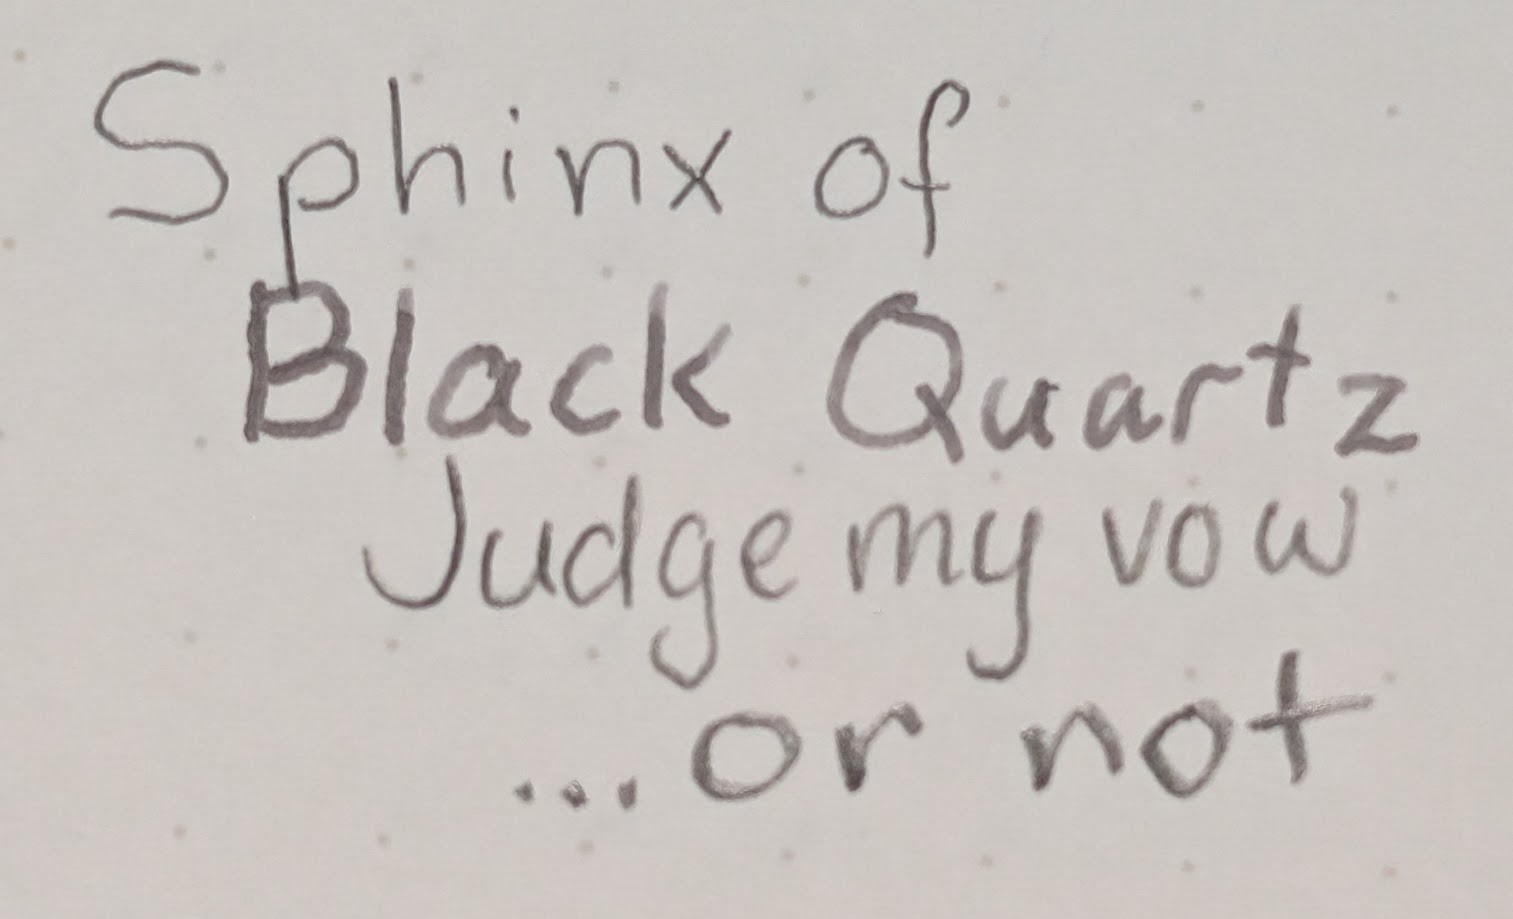 Sphinx of
Black Quartz
Judge my vow
...or not